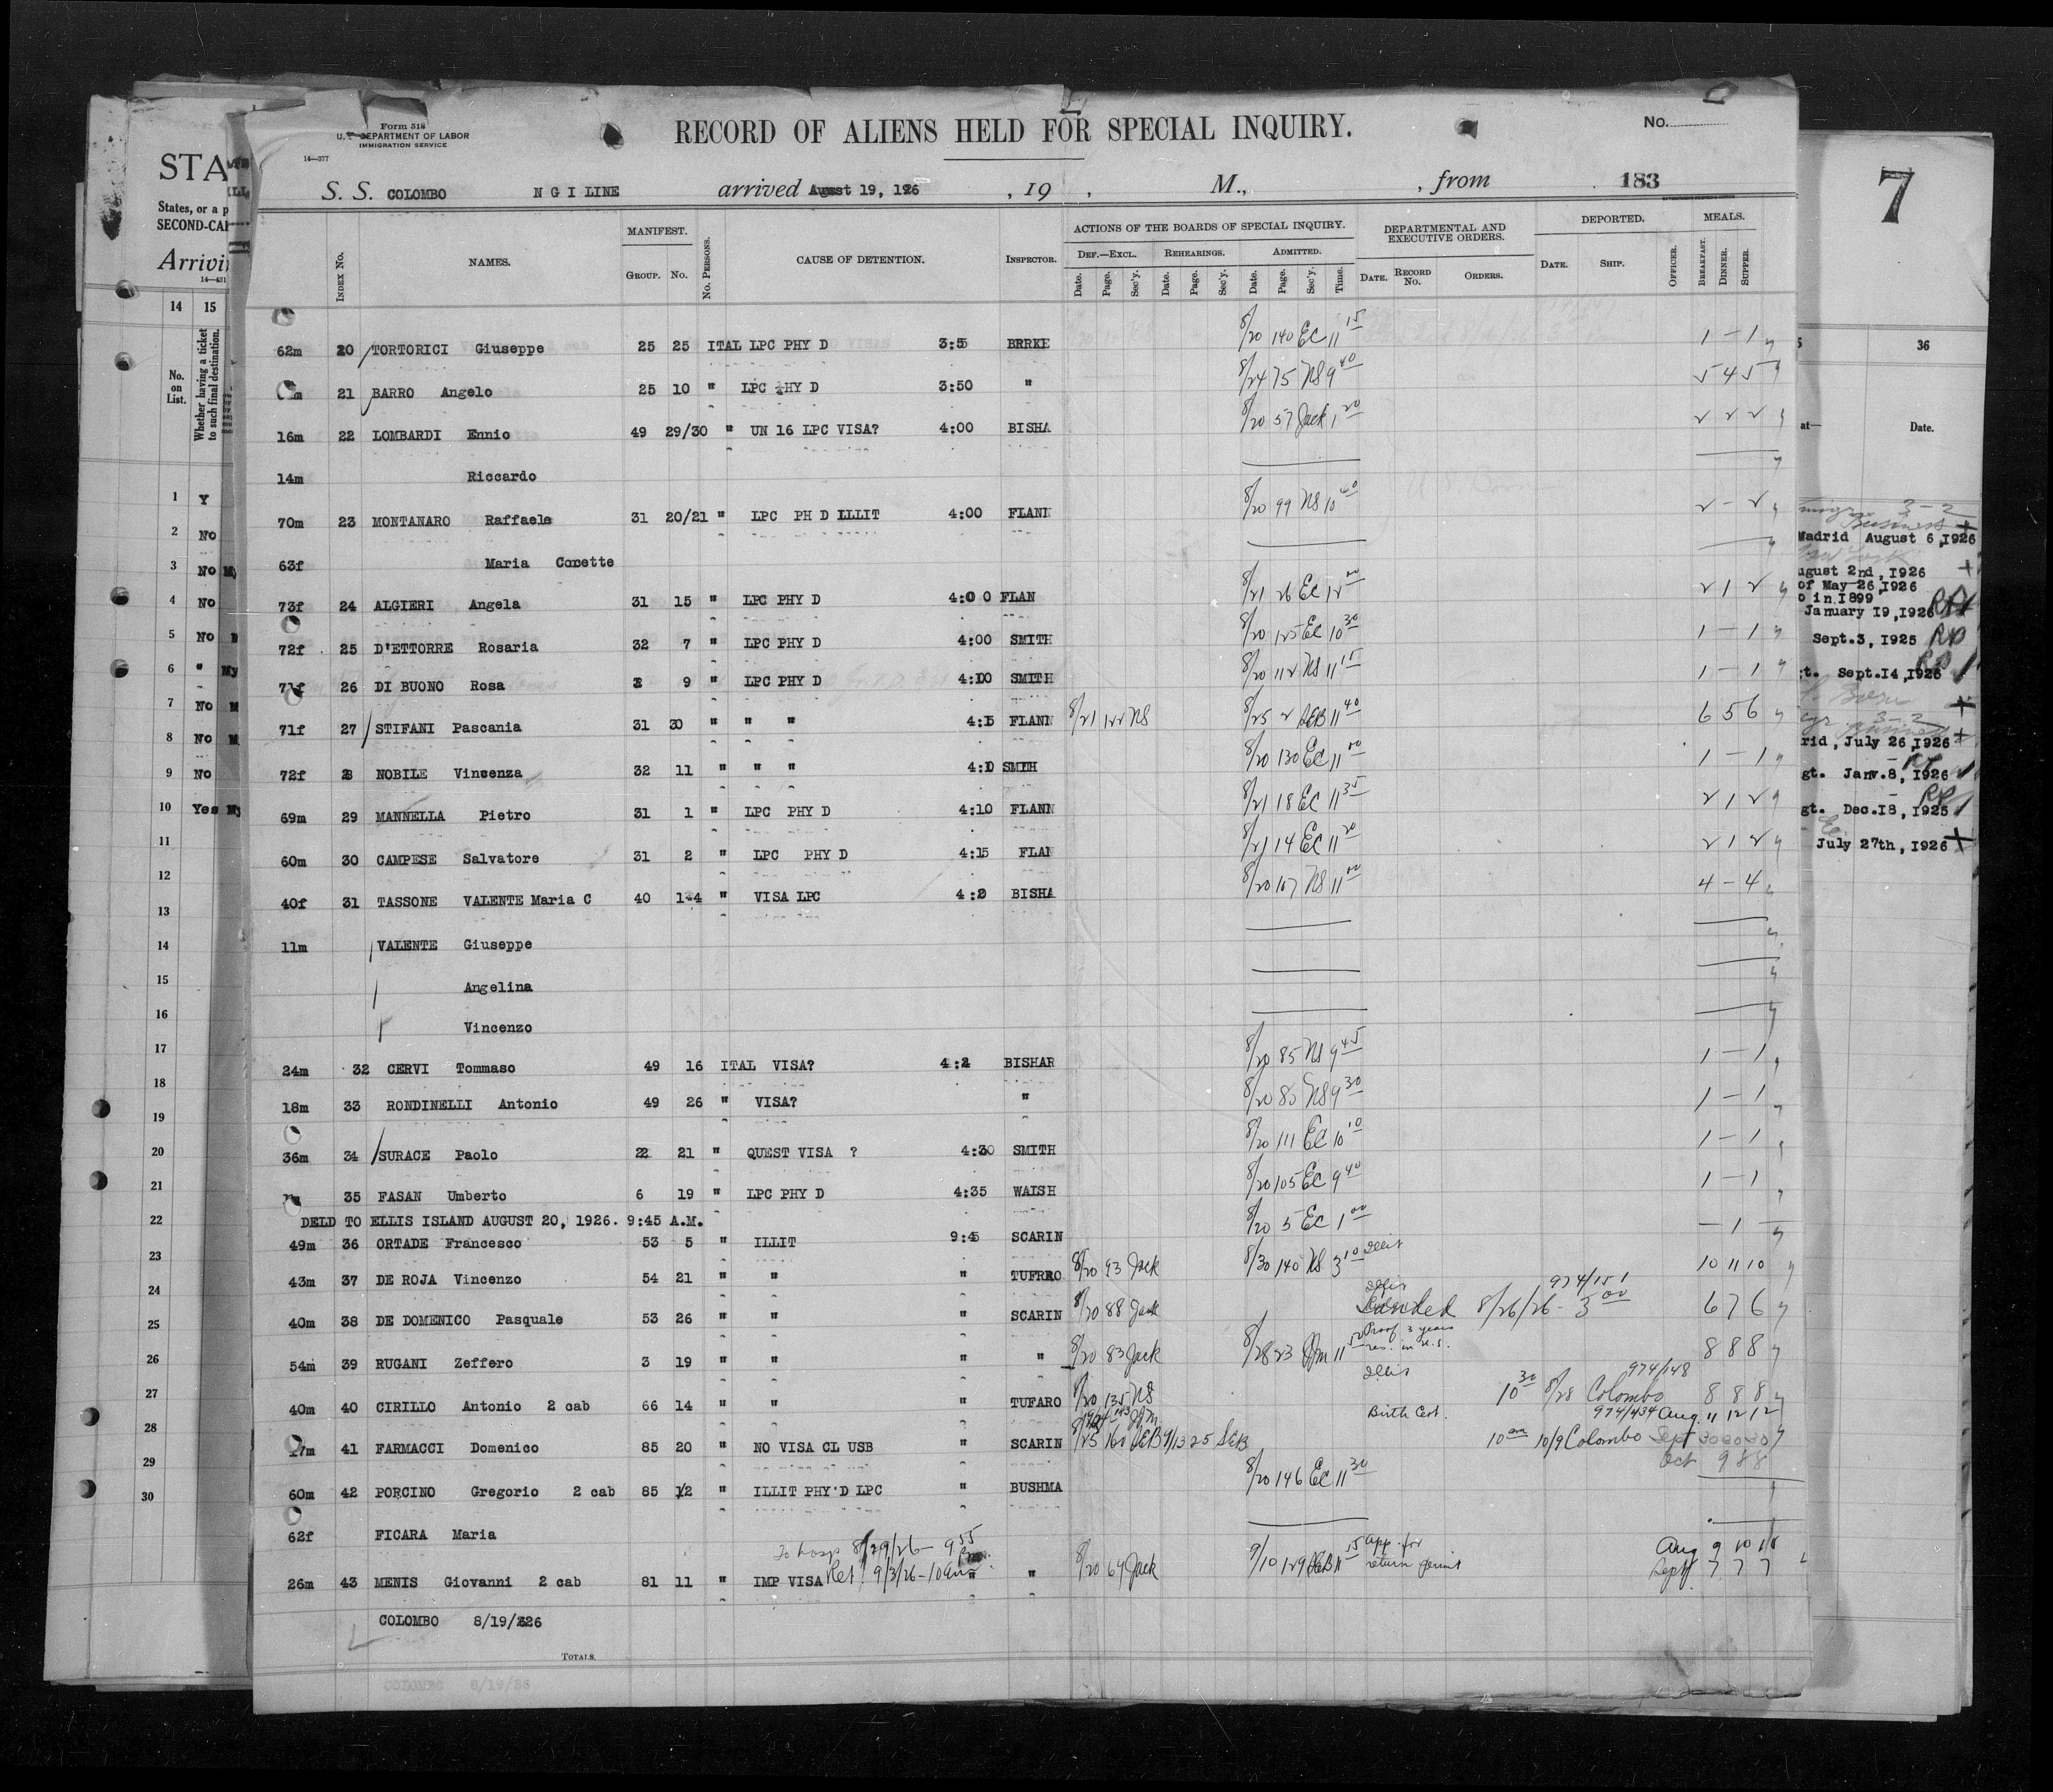 Form 518
U.S. DEPARTMENT OF LABOR
IMMIGRATION SERVICE
14—377
RECORD OF ALIENS HELD FOR SPECIAL INQUIRY.
No.
S. S. COLOMBO N G I LINE arrived August 19, 1926 , 19 , M., , from 183
INDEX No. NAMES. MANIFEST. GROUP. No. No. PERSONS. CAUSE OF DETENTION. INSPECTOR. ACTIONS OF THE BOARDS OF SPECIAL INQUIRY. DEPARTMENTAL AND EXECUTIVE ORDERS. DEPORTED. MEALS.
DEF.—EXCL. REHEARINGS. ADMITTED.
Date. Page. Sec'y. Date. Page. Sec'y. Date. Page. Sec'y. Time. DATE. RECORD No. ORDERS. DATE. SHIP. OFFICER. BREAKFAST. DINNER. SUPPER.
62m 20 TORTORICI Giuseppe 25 25 ITAL LPC PHY D 3:5 BRRKE 8/20 140 EC 11 15 1 — 1
21 BARRO Angelo 25 10 " LPC PHY D 3:50 " 8/24 75 NS 9 40 5 4 5
16m 22 LOMBARDI Ennio 49 29/30 " UN 16 LPC VISA? 4:00 BISHA 8/20 57 Jack 1 20 2 2 2
14m Riccardo
70m 23 MONTANARO Raffaele 31 20/21 " LPC PH D ILLIT 4:00 FLANN 8/20 99 NS 10 2 — 2
63f Maria Corette
73f 24 ALGIERI Angela 31 15 " LPC PHY D 4:0 0 FLAN 8/21 26 EC 12 00 2 1 2
72f 25 D'ETTORRE Rosaria 32 7 " LPC PHY D 4:00 SMITH 8/20 125 EC 10 30 1 — 1
71f 26 DI BUONO Rosa 9 " LPC PHY D 4:10 SMITH 8/20 112 NS 11 15 1 — 1
71f 27 STIFANI Pascania 31 30 " " " 4:15 FLANN 8/21 122 NS 8/25 2 SEB 11 40 6 5 6
72f 28 NOBILE Vincenza 32 11 " " " 4:10 SMITH 8/20 130 EC 11 00 1 — 1
69m 29 MANNELLA Pietro 31 1 " LPC PHY D 4:10 FLANN 8/21 18 EC 11 35 2 1 2
60m 30 CAMPESE Salvatore 31 2 " LPC PHY D 4:15 FLAN 8/21 14 EC 11 20 2 1 2
40f 31 TASSONE VALENTE Maria C 40 1-4 " VISA LPC 4:20 BISHA 8/20 107 NS 11 00 4 — 4
11m VALENTE Giuseppe
Angelina
Vincenzo
24m 32 CERVI Tommaso 49 16 ITAL VISA? 4:2 BISHAR 8/20 85 NS 9 45 1 — 1
18m 33 RONDINELLI Antonio 49 26 " VISA? " 8/20 80 NS 9 30 1 — 1
36m 34 SURACE Paolo 22 21 " QUEST VISA ? 4:30 SMITH 8/20 111 EC 10 10 1 — 1
35 FASAN Umberto 6 19 " LPC PHY D 4:35 WALSH 8/20 105 EC 9 40 1 — 1
DELD TO ELLIS ISLAND AUGUST 20, 1926. 9:45 A.M.
49m 36 ORTADE Francesco 53 5 " ILLIT 9:45 SCARIN 8/20 5 EC 1 00 — 1 —
43m 37 DE ROJA Vincenzo 54 21 " " " TUFRRO 8/20 93 Jack 8/30 140 NS 3 10 Illit 10 11 10
40m 38 DE DOMENICO Pasquale 53 26 " " " SCARIN 8/20 88 Jack Illit Landed 974/151 8/26/26 - 3 00 6 7 6
54m 39 RUGANI Zeffero 3 19 " " " " 8/20 83 Jack 8/28 23 11 Proof 3 years res. in U.S. 8 8 8
40m 40 CIRILLO Antonio 2 cab 66 14 " " " TUFARO 8/20 135 NS Illit 974/148 10 30 8/28 Colombo 8 8 8
41 FARMACCI Domenico 85 20 " NO VISA CL USB " SCARIN 8/25 160 SEB 9/13 25 SEB Birth Cert. 974/434 10 am 10/9 Colombo Aug. 11 12 12
Sept 30 30 30
Oct 9 8 8
60m 42 PORCINO Gregorio 2 cab 85 1/2 " ILLIT PHY'D LPC " BUSHMA 8/20 146 EC 11 30
62f FICARA Maria
To hosp 8/29/26 — 9 55
26m 43 MENIS Giovanni 2 cab 81 11 " IMP VISA Ret. 9/3/26 - 10 am " " 8/20 69 Jack 9/10 129 SEB 11 15 App. for return permit Aug 9 10
Sept 7 7 7
COLOMBO 8/19/26
TOTALS.
COLOMBO 8/19/26
STA
States, or a p
SECOND-CA
Arrivi
14—431
14 15
No. on List.
Whether having a ticket to such final destination.
1 Y
2 No
3 No
4 No
5 No
6 " My
7 No
8 No
9 No
10 Yes My
11
12
13
14
15
16
17
18
19
20
21
22
23
24
25
26
27
28
29
30
7
36
at—
Date.
3-2
Business
Madrid August 6,1926
ugust 2nd,1926
of May-26,1926
o in 1899
January 19,1926
Sept.3, 1925
gt. Sept.14,1925
3-2
rid, July 26,1926
gt. Janv.8, 1926
gt. Dec.18, 1925
July 27th, 1926